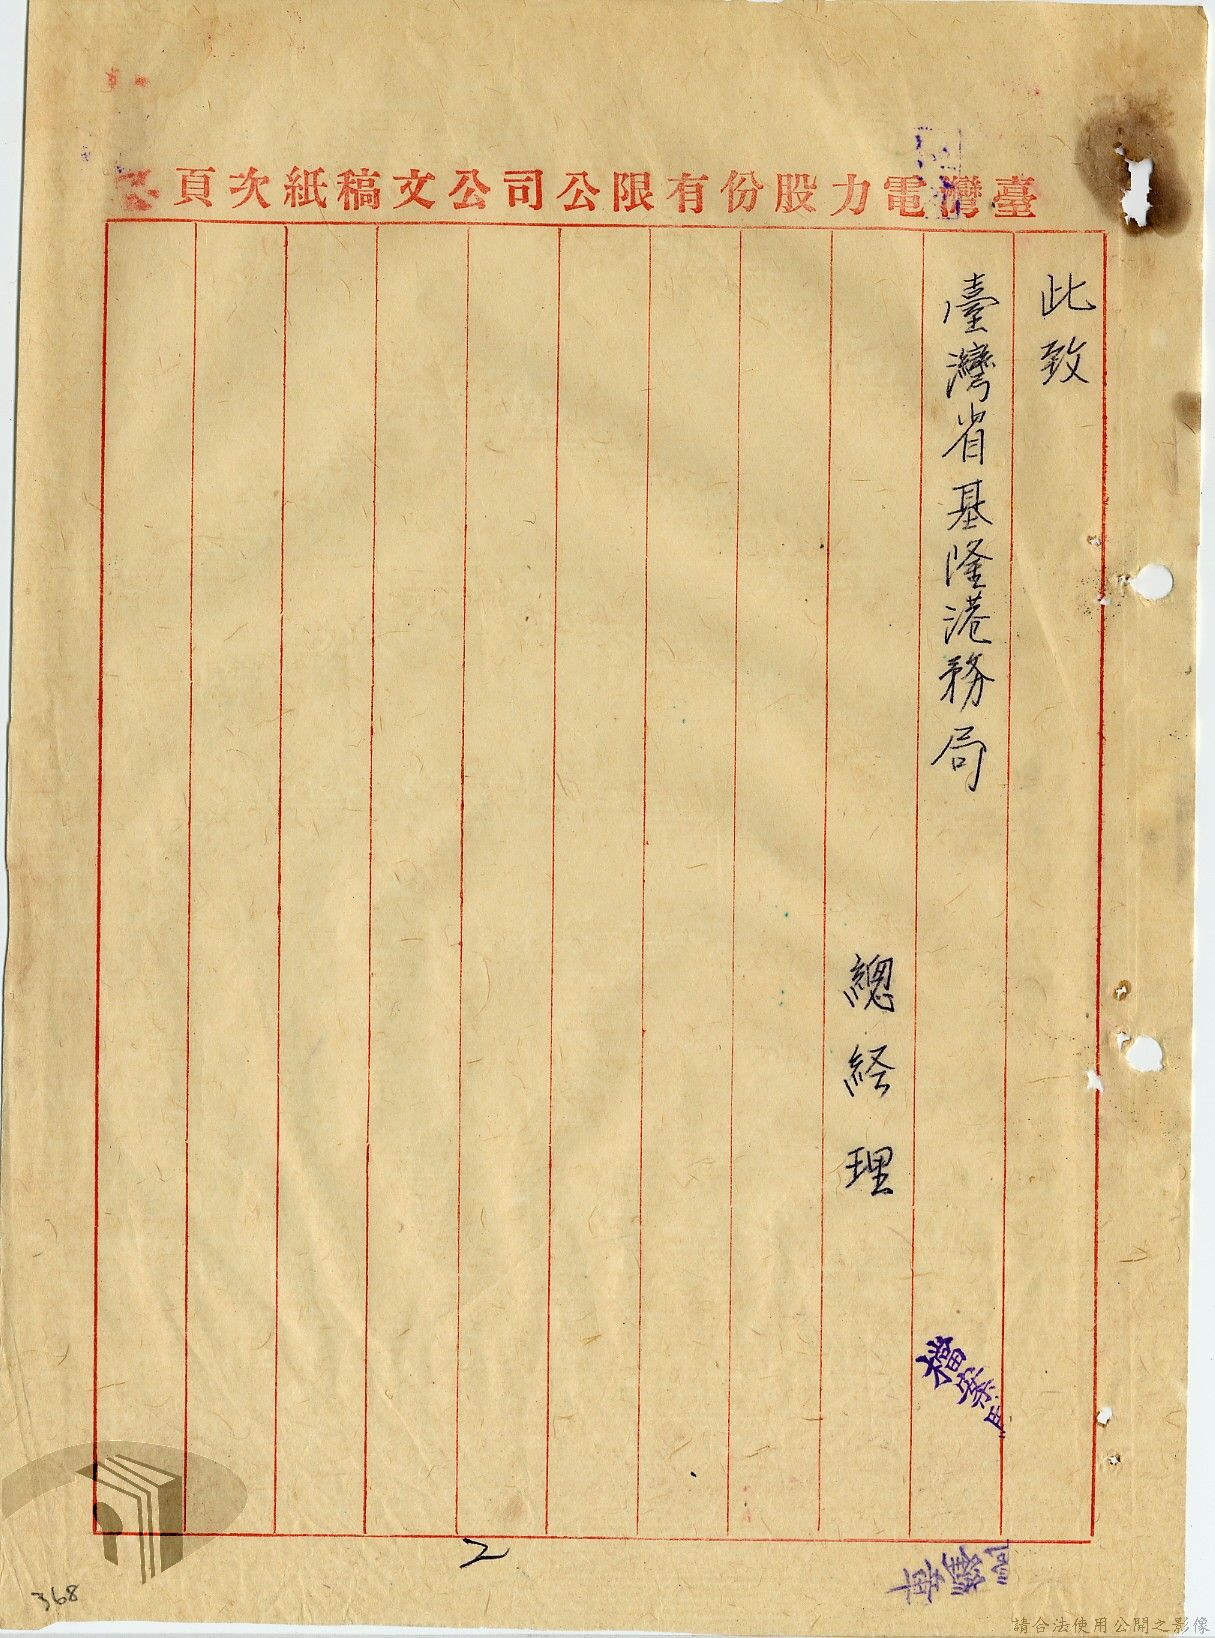 臺灣電力股份有限公司公文稿紙次頁
此致
臺灣省基隆港務局
總経理
檔案
2
368
請合法使用公開之影像